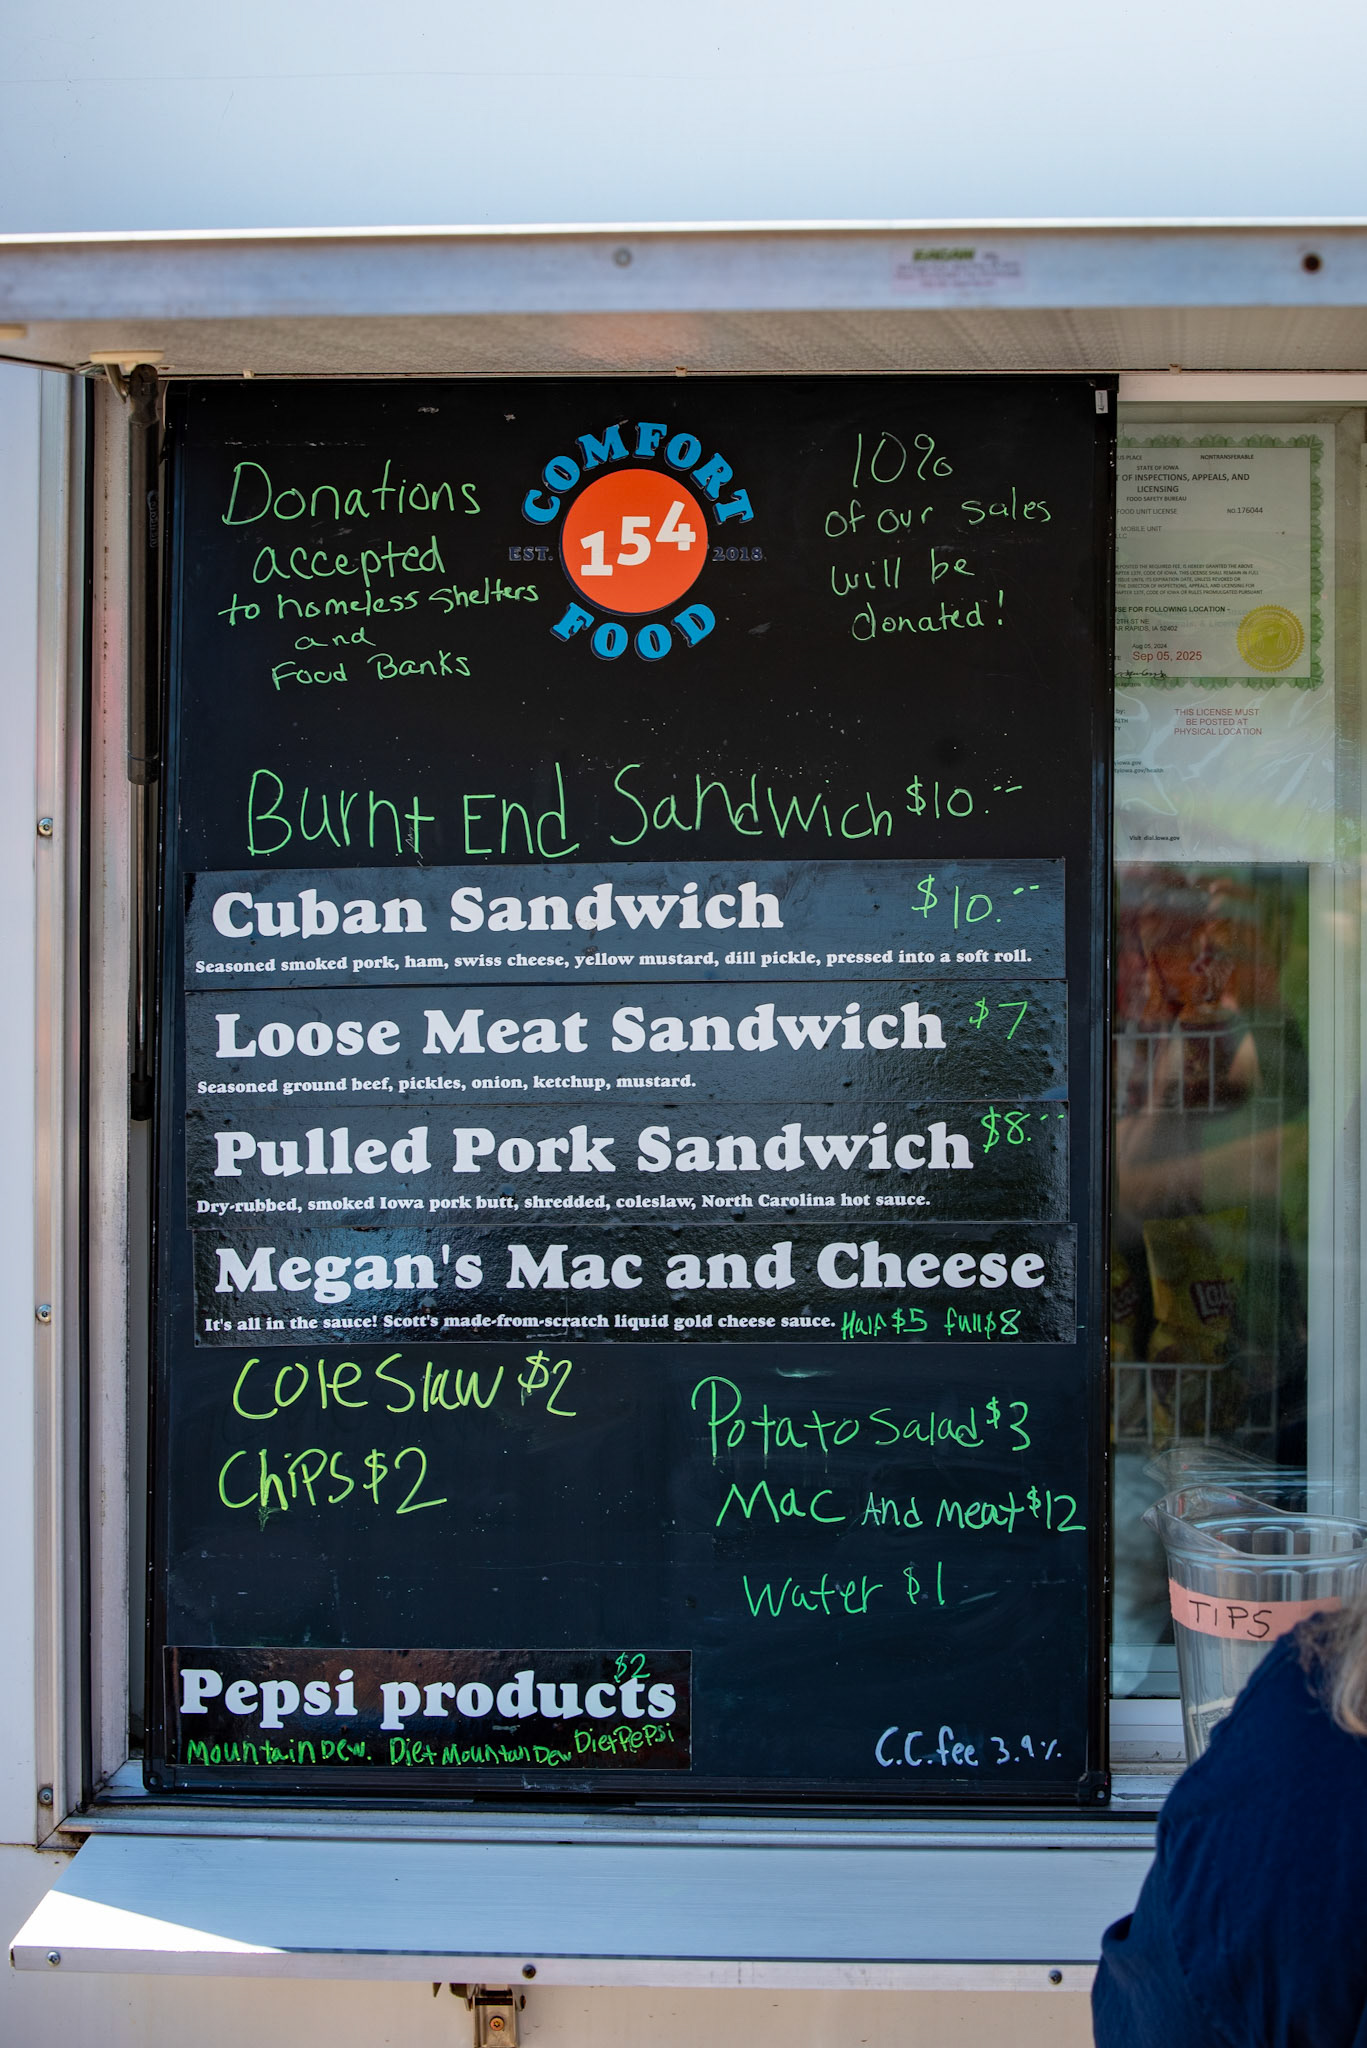 Donations
accepted
to homeless shelters
and
Food Banks
COMFORT
EST. 154 2018
FOOD
10%
of our sales
will be
donated!
Burnt End Sandwich $10.--
Cuban Sandwich $10.--
Seasoned smoked pork, ham, swiss cheese, yellow mustard, dill pickle, pressed into a soft roll.
Loose Meat Sandwich $7
Seasoned ground beef, pickles, onion, ketchup, mustard.
Pulled Pork Sandwich $8.--
Dry-rubbed, smoked Iowa pork butt, shredded, coleslaw, North Carolina hot sauce.
Megan's Mac and Cheese
It's all in the sauce! Scott's made-from-scratch liquid gold cheese sauce. Half $5 full $8
Coleslaw $2
Chips $2
Potato Salad $3
Mac And meat $12
Water $1
Pepsi products $2
Mountain Dew. Diet Mountan Dew Diet Pepsi
C.C. fee 3.9%
NONTRANSFERABLE
STATE OF IOWA
OF INSPECTIONS, APPEALS, AND
LICENSING
FOOD SAFETY BUREAU
FOOD UNIT LICENSE NO.176044
MOBILE UNIT
LLC
FOR FOLLOWING LOCATION -
RAPIDS, IA 52402
Aug 05, 2024
Sep 05, 2025
THIS LICENSE MUST
BE POSTED AT
PHYSICAL LOCATION
Visit dial.iowa.gov
TIPS